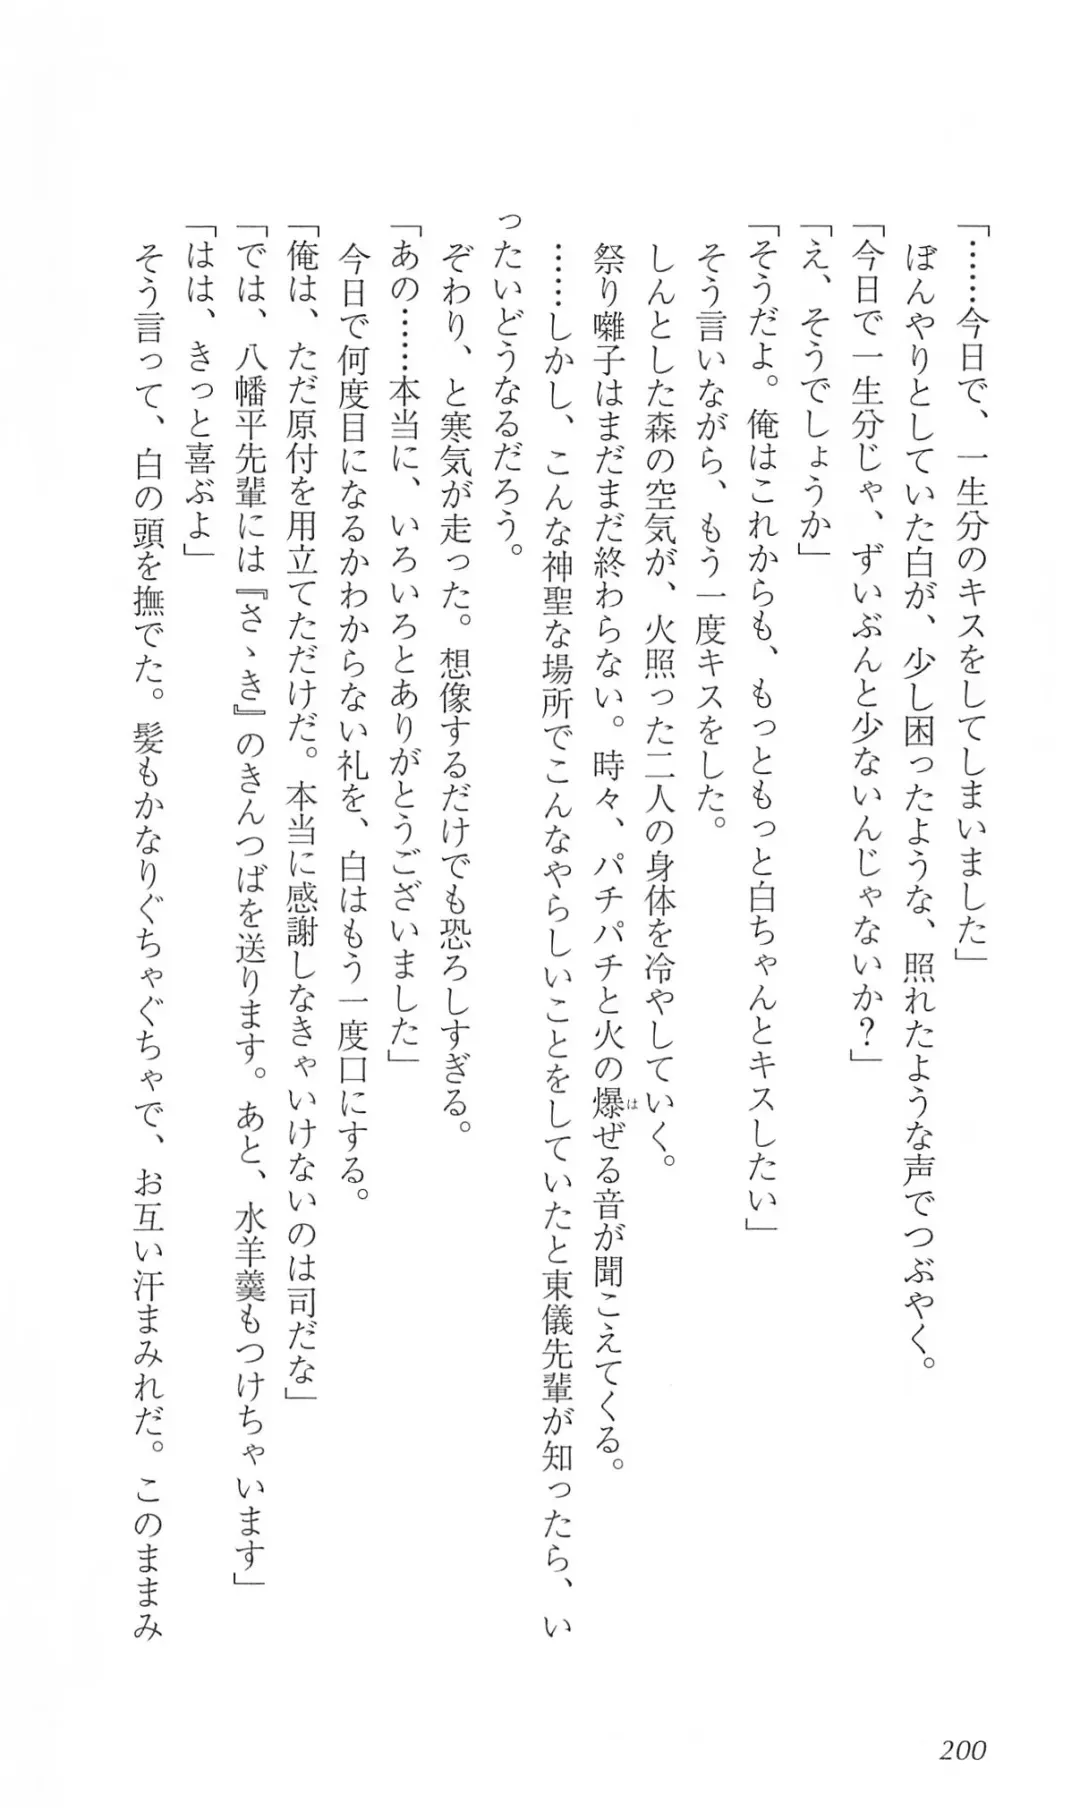 「……今日で、一生分のキスをしてしまいました」
ぼんやりとしていた白が、少し困ったような、照れたような声でつぶやく。
「今日で一生分じゃ、ずいぶんと少ないんじゃないか？」
「え、そうでしょうか」
「そうだよ。俺はこれからも、もっともっと白ちゃんとキスしたい」
そう言いながら、もう一度キスをした。
しんとした森の空気が、火照った二人の身体を冷やしていく。
祭り囃子はまだまだ終わらない。時々、パチパチと火の爆ぜる音が聞こえてくる。
は
……しかし、こんな神聖な場所でこんなやらしいことをしていたと東儀先輩が知ったら、い
ったいどうなるだろう。
ぞわり、と寒気が走った。想像するだけでも恐ろしすぎる。
「あの……本当に、いろいろとありがとうございました」
今日で何度目になるかわからない礼を、白はもう一度口にする。
「俺は、ただ原付を用立てただけだ。本当に感謝しなきゃいけないのは司だな」
「では、八幡平先輩には『さゝき』のきんつばを送ります。あと、水羊羹もつけちゃいます」
「はは、きっと喜ぶよ」
そう言って、白の頭を撫でた。髪もかなりぐちゃぐちゃで、お互い汗まみれだ。このままみ
200